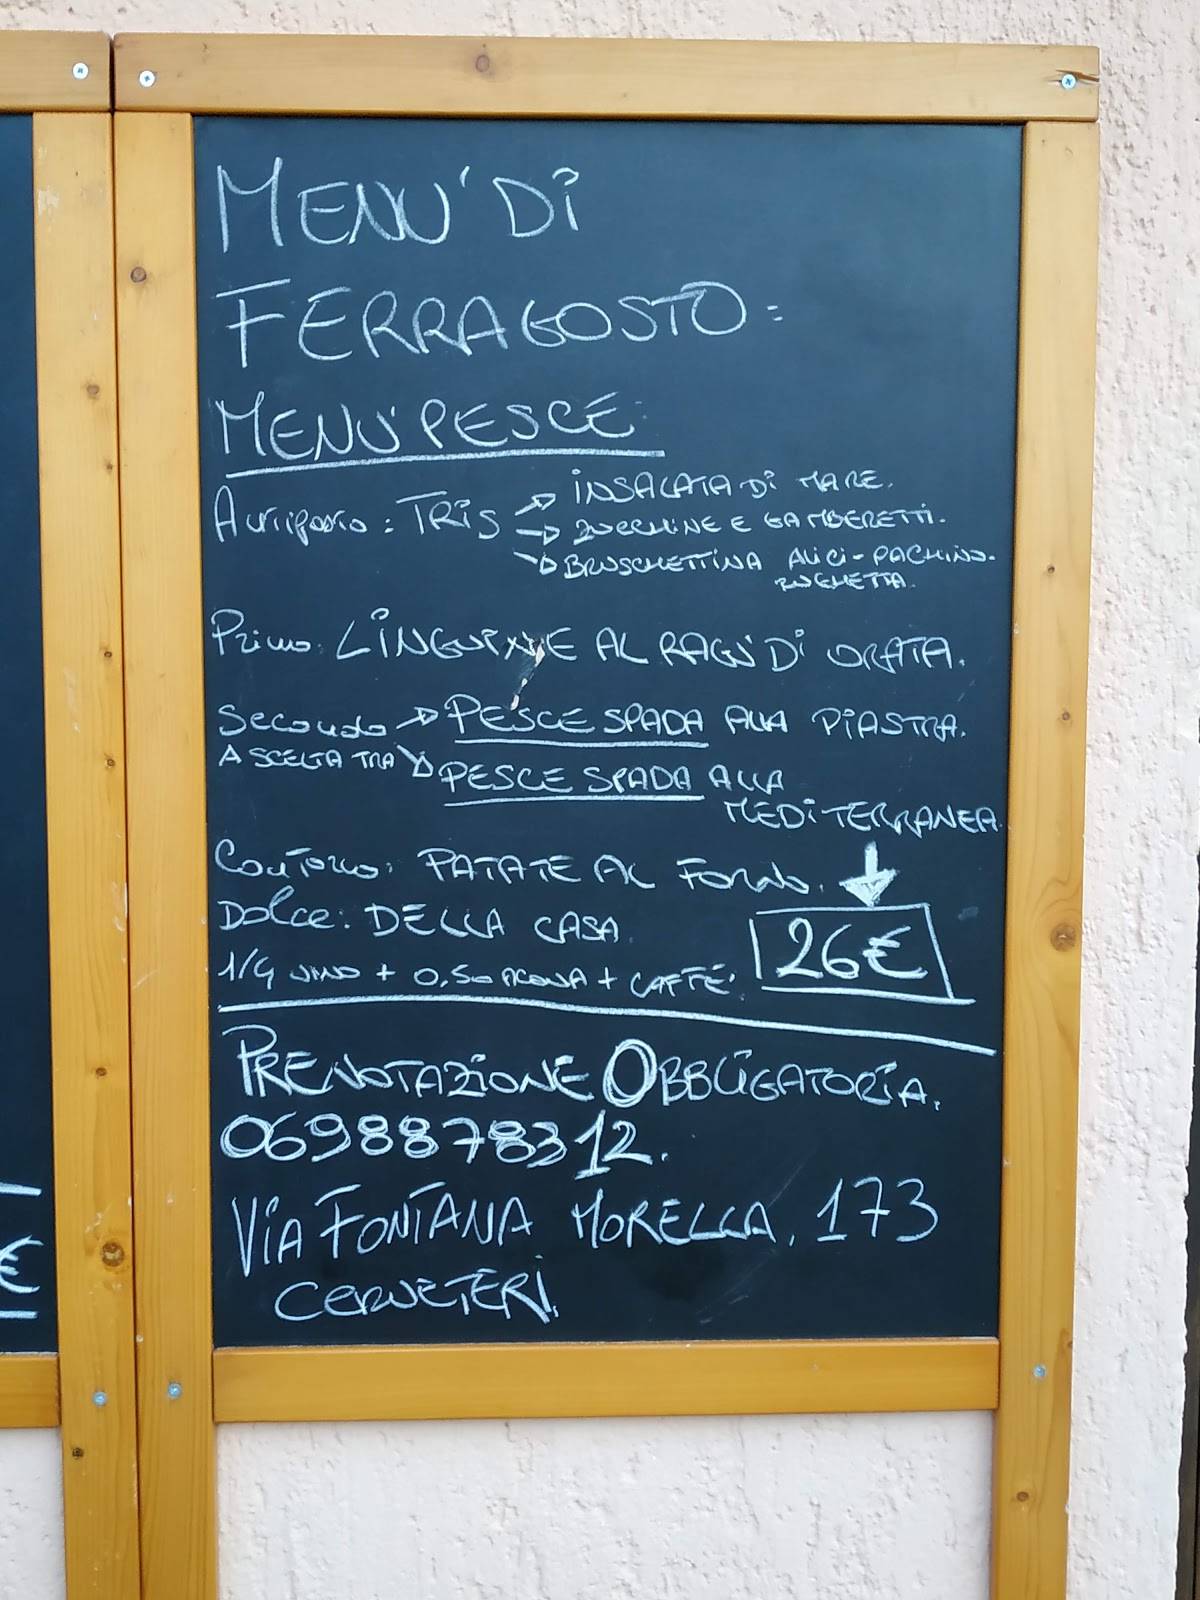 MENU' DI
FERRAGOSTO:
MENU' PESCE:
Antipasto: TRIS → INSALATA DI MARE.
→ ZUCCHINE E GAMBERETTI.
→ BRUSCHETTINA ALICI-PACHINO-
RUGHETTA.
Primo: LINGUINE AL RAGU' DI ORATA.
Secondo → PESCE SPADA ALLA PIASTRA.
A SCELTA TRA → PESCE SPADA ALLA
MEDITERRANEA.
Contorno: PATATE AL Forno.
Dolce: DELLA CASA.
26€
1/4 VINO + 0,50 ACQUA + CAFFE'.
PRENOTAZIONE OBBLIGATORIA.
0698878312.
VIA FONTANA MORELLA, 173
CERVETERI.
€